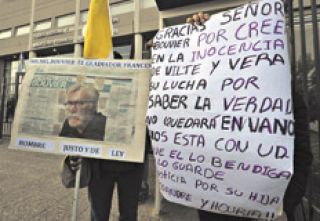 JEAN MICHEL BOUVIER EL GLADIADOR FRANCES
BOUVIER
HOMBRE JUSTO Y DE LEY
GRACIAS SEÑOR
BOUVIER POR CREER
EN LA INOCENCIA
DE VILTE Y VERA
SU LUCHA POR
SABER LA VERDAD
NO QUEDARÁ EN VANO
DIOS ESTA CON UD.
QUE EL LO BENDIGA
LO GUARDE
JUSTICIA POR SU HIJA
Y HOURIA!!